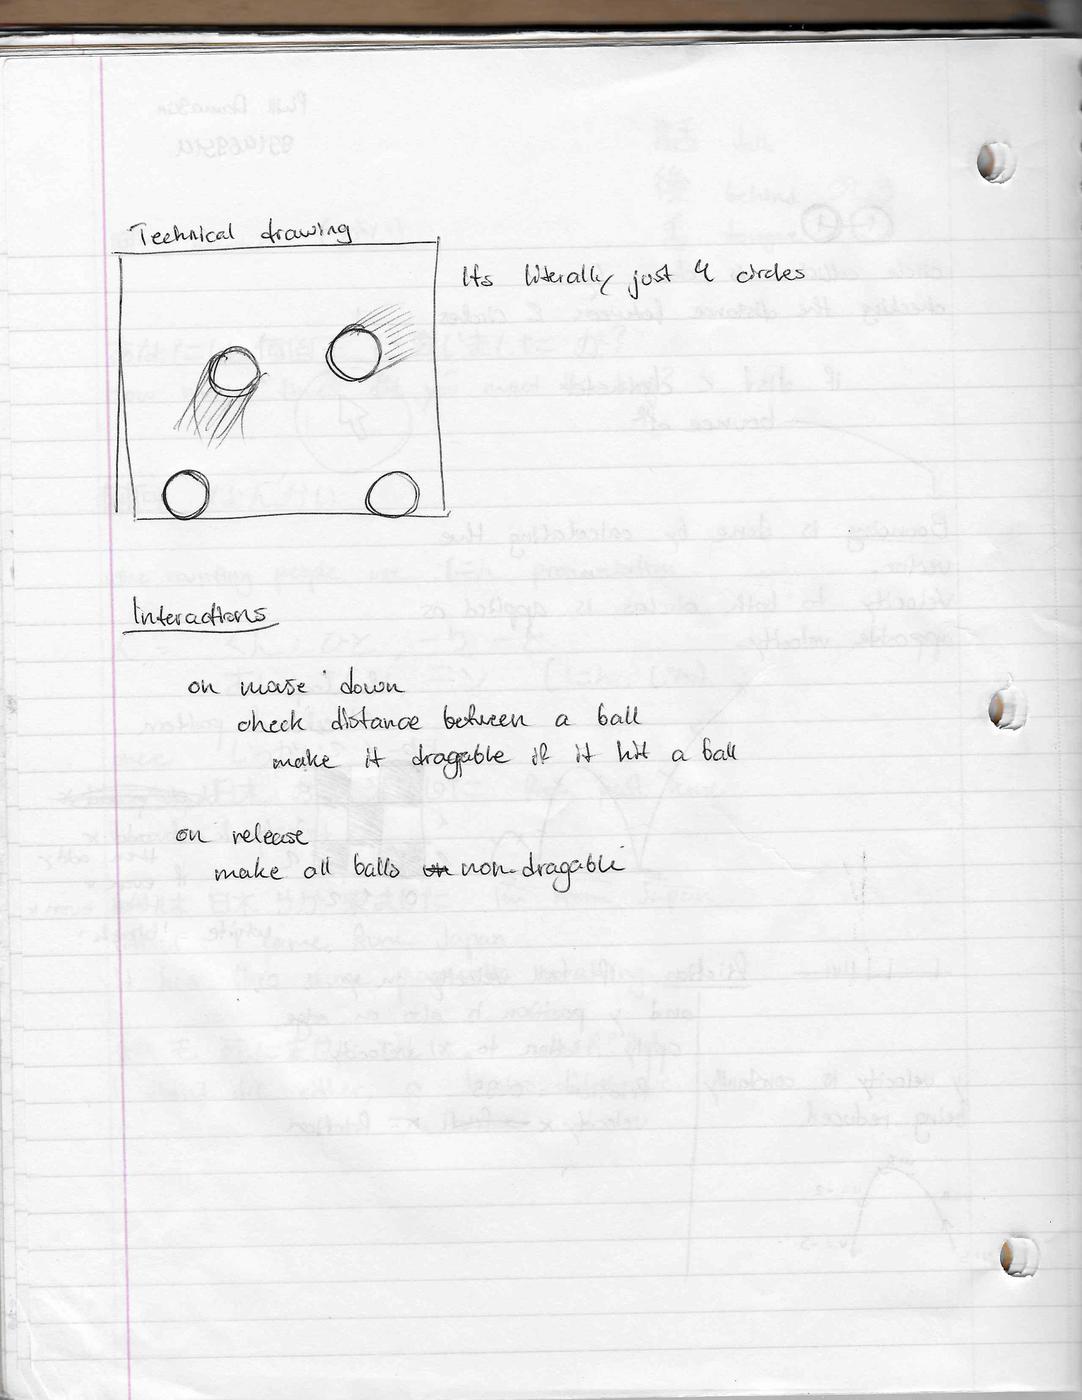 Technical drawing
Its literally just 4 circles
Interactions
on mouse down
check distance between a ball
make it dragable if it hit a ball
on release
make all balls non-dragable